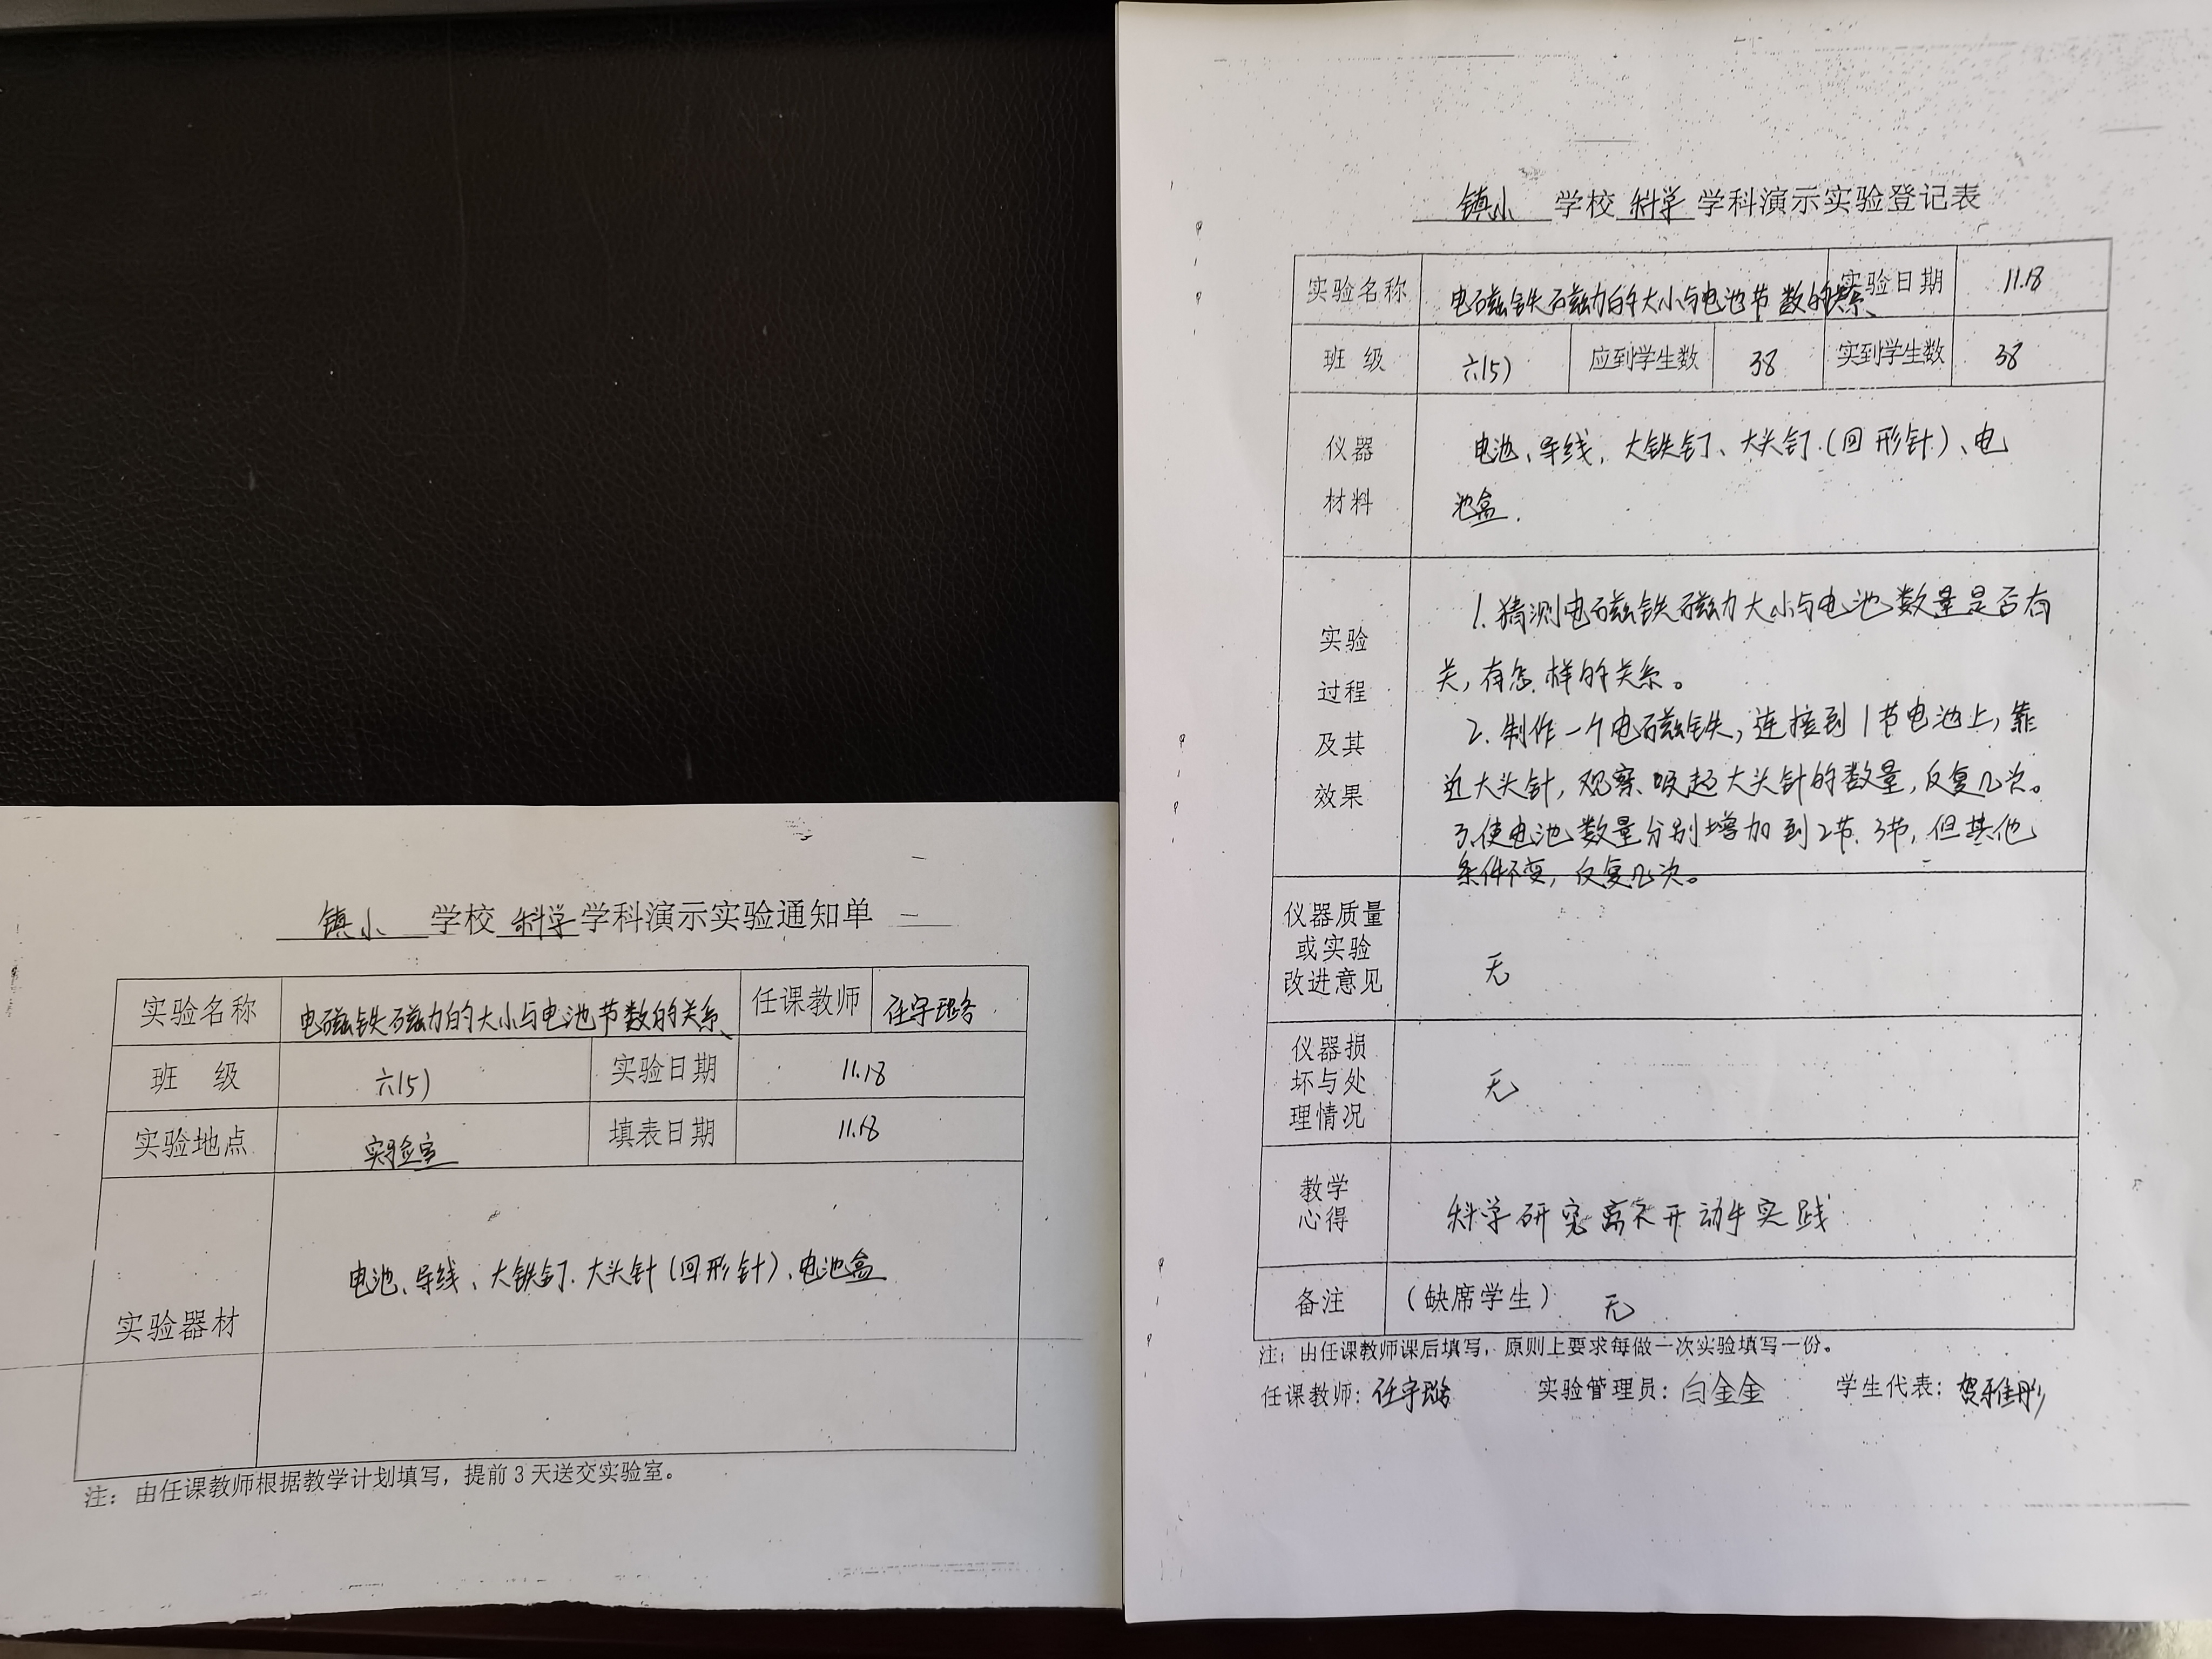 镇小 学校 科学 学科演示实验通知单
实验名称 电磁铁磁力的大小与电池节数的关系 任课教师 任宇璐
班 级 六(5) 实验日期 11.18
实验地点 实验室 填表日期 11.18
实验器材 电池、导线、大铁钉、大头针(回形针)、电池盒
注：由任课教师根据教学计划填写，提前3天送交实验室。
镇小 学校 科学 学科演示实验登记表
实验名称 电磁铁磁力的大小与电池节数的关系 实验日期 11.18
班 级 六(5) 应到学生数 38 实到学生数 38
仪器
材料
电池、导线、大铁钉、大头钉(回形针)、电
池盒.
实验
过程
及其
效果
1.猜测电磁铁磁力大小与电池数量是否有
关,有怎样的关系。
2.制作一个电磁铁,连接到1节电池上,靠
近大头针,观察吸起大头针的数量,反复几次。
3.使电池数量分别增加到2节、3节,但其他
条件不变,反复几次。
仪器质量
或实验
改进意见
无
仪器损
坏与处
理情况
无
教学
心得
科学研究离不开动手实践
备注 (缺席学生) 无
注：由任课教师课后填写，原则上要求每做一次实验填写一份。
任课教师：任宇璐 实验管理员：白金金 学生代表：贺雅彤